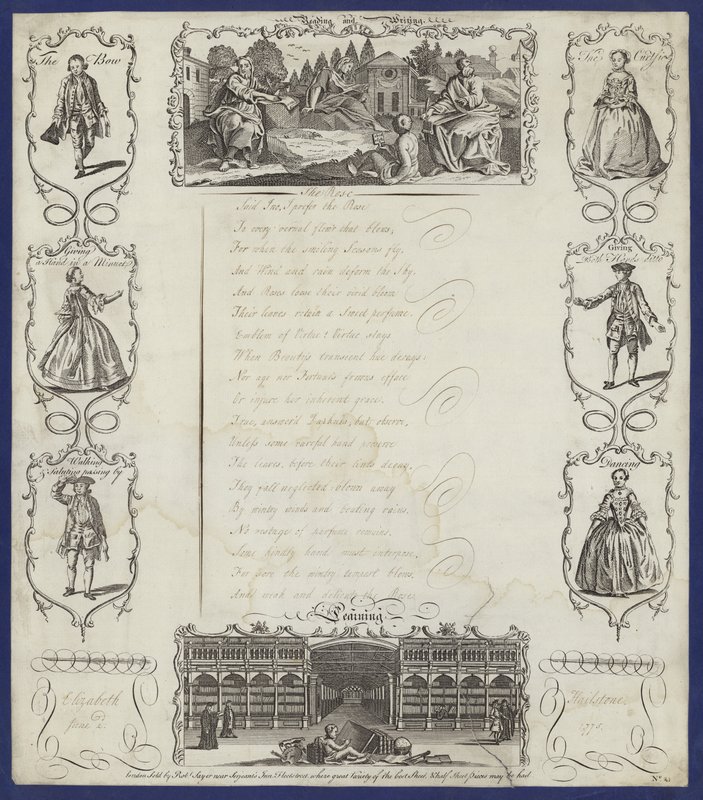 Reading and Writing.
The Bow
The Curtsie
Giving
a Hand in a Minuet
Giving
Both Hands ditto
Walking
& Saluting passing by
Dancing
The Rose
Said Ino, I prefer the Rose
To every vernal flow'r that blows,
For when the smiling Seasons fly,
And Wind and rain deform the Sky,
And Roses loose their vivid bloom
Their leaves retain a Sweet perfume.
Emblem of Virtue! Virtue stays
When Beauty's transient hue decays:
Nor age nor Fortune's frowns efface
Or injure her inherent grace.
True, answer'd Daphnis, but observe,
Unless some careful hand preserve
The leaves, before their tints decay,
They fall neglected; blown away
By wintry winds and beating rains,
No vestage of perfume remains.
Some kindly hand must interpose,
For sore the wintry tempest blows,
And weak and delicate the Rose.
Learning
Elizabeth
June 2.
Hailstone
1775.
London Sold by Robt. Sayer near Serjeants Inn Fleetstreet, where great Variety of the best Sheet, & half Sheet pieces may be had
No.